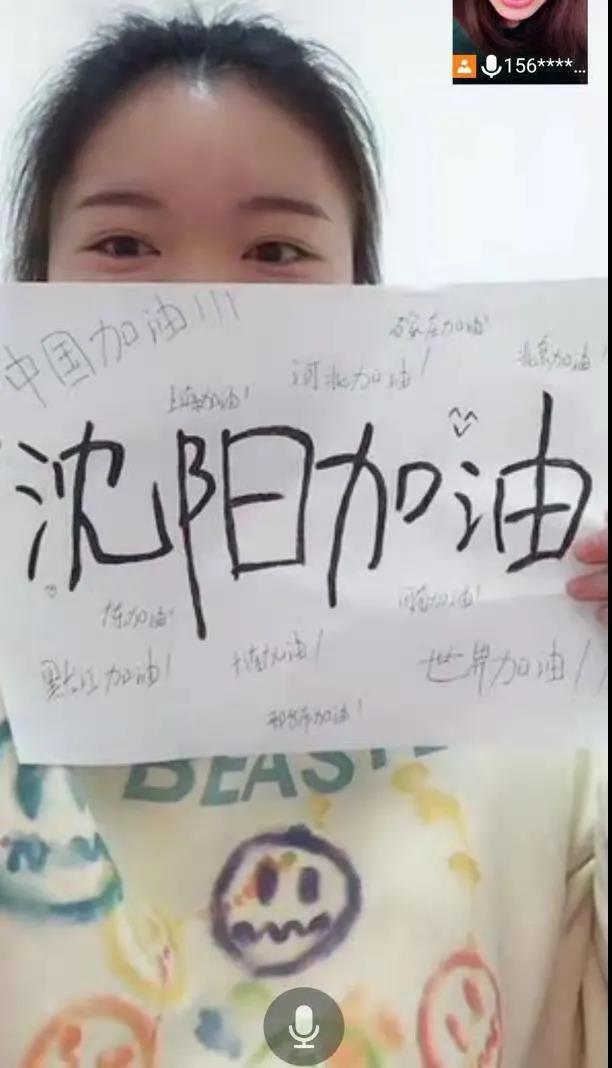 156****...
中国加油!!!
石家庄加油!
北京加油!
河北加油!
上海加油!
沈阳加油
加油!
河南加油!
黑龙江加油!
大连加油!
世界加油!!
加油!
BEAST